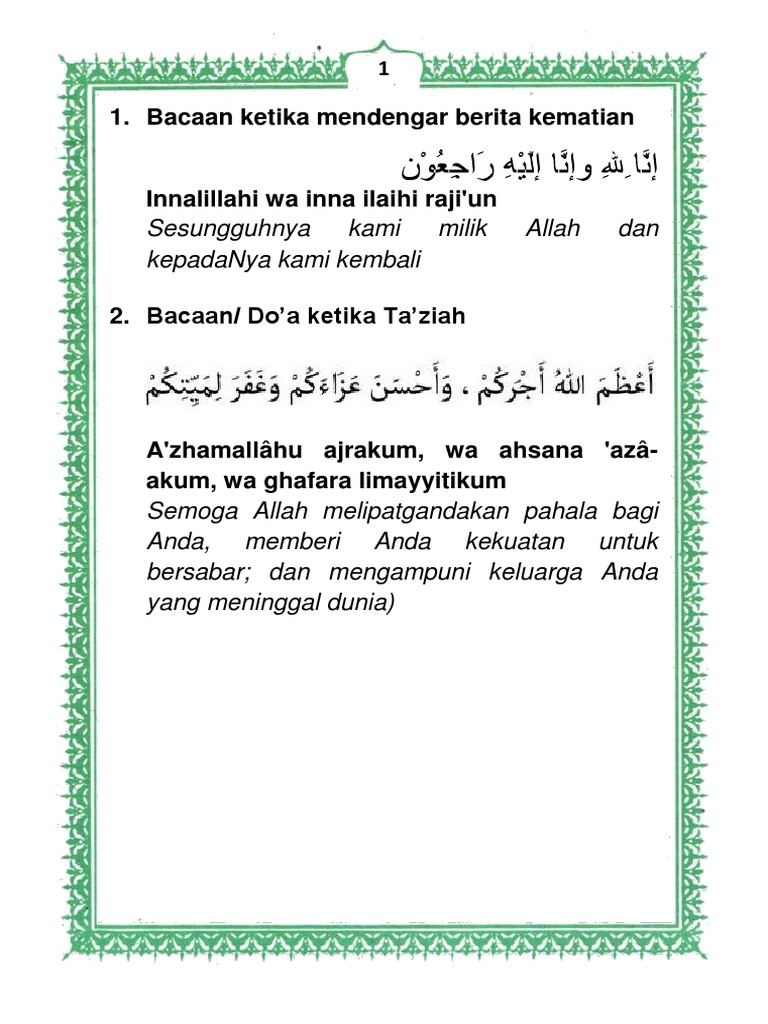 1
1. Bacaan ketika mendengar berita kematian
إنَّا لِلهِ وإنَّا إلَيْهِ رَاجِعُوْن
Innalillahi wa inna ilaihi raji'un
Sesungguhnya kami milik Allah dan
kepadaNya kami kembali
2. Bacaan/ Do’a ketika Ta’ziah
أَعْظَمَ اللهُ أَجْرَكُمْ ، وَأَحْسَنَ عَزَاءَكُمْ وَغَفَرَ لِمَيِّتِكُمْ
A'zhamallâhu ajrakum, wa ahsana 'azâ-
akum, wa ghafara limayyitikum
Semoga Allah melipatgandakan pahala bagi
Anda, memberi Anda kekuatan untuk
bersabar; dan mengampuni keluarga Anda
yang meninggal dunia)